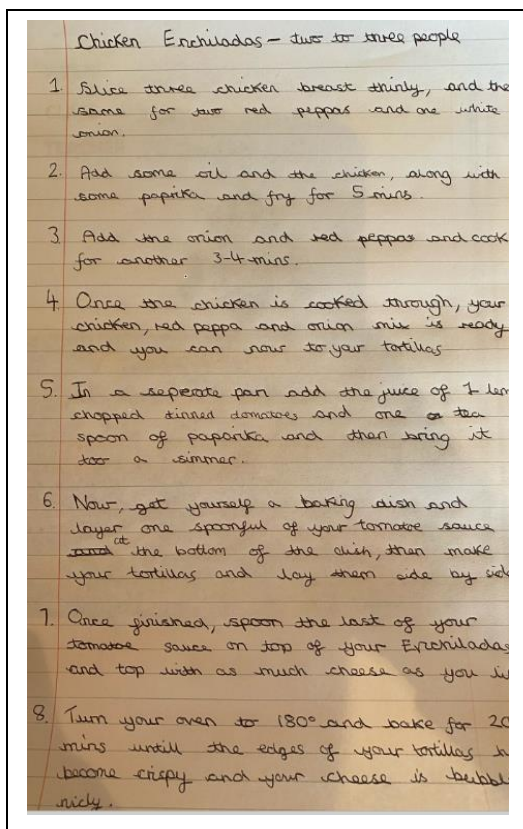 Chicken Enchiladas – two to three people
1. Slice three chicken breast thinly, and the
same for two red peppas and one white
onion.
2. Add some oil and the chicken, along with
some paprika and fry for 5 mins.
3. Add the onion and red peppas and cook
for another 3-4 mins.
4. Once the chicken is cooked through, your
chicken, red peppa and onion mix is ready
and you can now to your tortillas
5. In a seperate pan add the juice of 1 lem
chopped tinned tomatoes and one tea
spoon of paporika and then bring it
too a simmer.
6. Now, get yourself a baking dish and
layer one spoonful of your tomatoe sauce
at the bottom of the dish, then make
your tortillas and lay them side by sid
7. Once finished, spoon the last of your
tomatoe sauce on top of your Enchiladas
and top with as much cheese as you
8. Turn your oven to 180° and bake for 20
mins untill the edges of your tortillas h
become crispy and your cheese is bubbl
nicly.